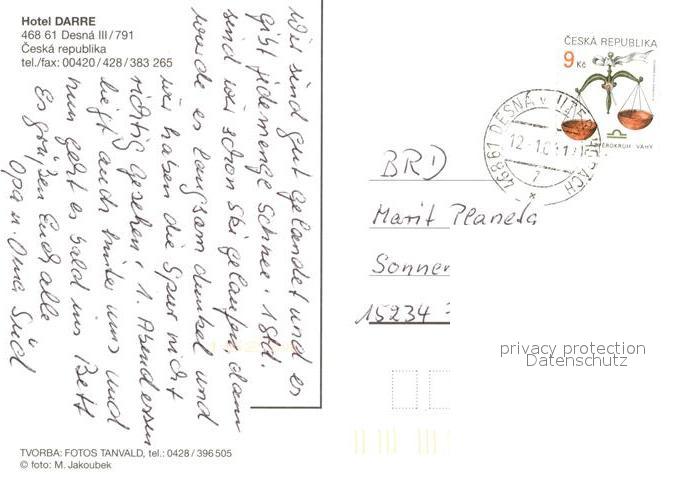 Hotel DARRE
468 61 Desná III/791
Česká republika
tel./fax: 00420/428/383 265
Wir sind gut gelandet und es
gibt jedemenge Schnee. 1 Std.
sind wir schon Ski gelaufen, dann
wurde es langsam dunkel und
wir haben die Spur nicht
richtig gesehen. 1. Abendessen
liegt auch hinter uns und
nun geht es bald ins Bett
Es grüßen Euch alle
Opa u. Oma Süd
TVORBA: FOTOS TANVALD, tel.: 0428/396505
© foto: M. Jakoubek
ČESKÁ REPUBLIKA
9 Kč
ZVĚROKRUH VÁHY
46861 DESNÁ v JIZER. HORÁCH
BRD
Marit Planeta
Sonnen
15234
privacy protection
Datenschutz